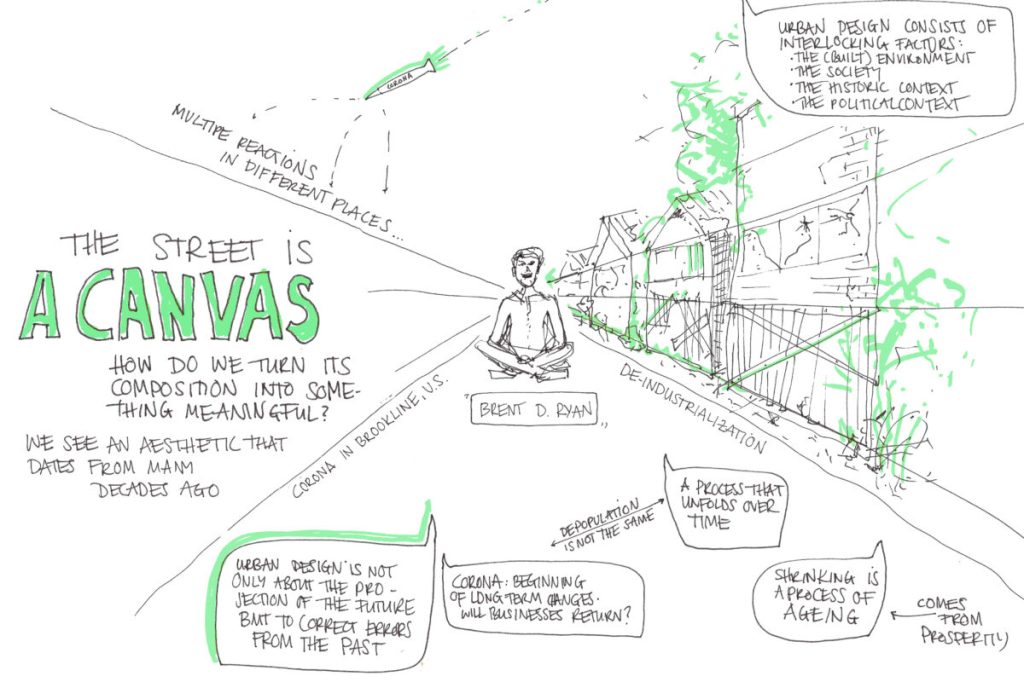 CORONA
MULTIPLE REACTIONS
IN DIFFERENT PLACES...
URBAN DESIGN CONSISTS OF
INTERLOCKING FACTORS:
· THE (BUILT) ENVIRONMENT
· THE SOCIETY
· THE HISTORIC CONTEXT
· THE POLITICAL CONTEXT
THE STREET IS
A CANVAS
HOW DO WE TURN ITS
COMPOSITION INTO SOME-
THING MEANINGFUL?
WE SEE AN AESTHETIC THAT
DATES FROM MANY
DECADES AGO
"BRENT D. RYAN"
CORONA IN BROOKLINE, U.S.
DE-INDUSTRIALIZATION
A PROCESS THAT
UNFOLDS OVER
TIME
DEPOPULATION
IS NOT THE SAME
URBAN DESIGN IS NOT
ONLY ABOUT THE PRO-
JECTION OF THE FUTURE
BUT TO CORRECT ERRORS
FROM THE PAST
CORONA: BEGINNING
OF LONG TERM CHANGES.
WILL BUSINESSES RETURN?
SHRINKING IS
A PROCESS OF
AGEING
COMES
FROM
PROSPERTIY